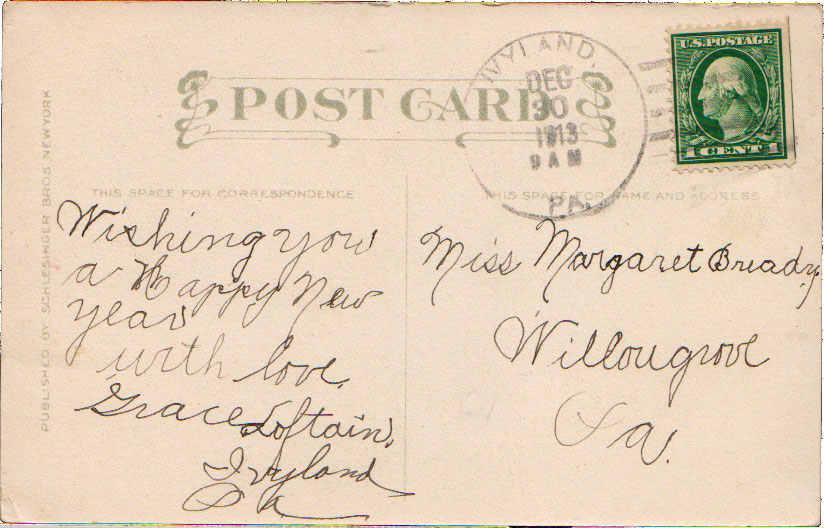 IVYLAND,
DEC
30
1913
9 AM
PA.
U.S. POSTAGE
1 CENT 1
POST CARD
THIS SPACE FOR CORRESPONDENCE
THIS SPACE FOR NAME AND ADDRESS
PUBLISHED BY SCHLESINGER BROS. NEW YORK
Wishing you
a Happy New
year
with love.
Grace Loftain,
Ivyland
Pa
Miss Margaret Bready
Willougrove
Pa.